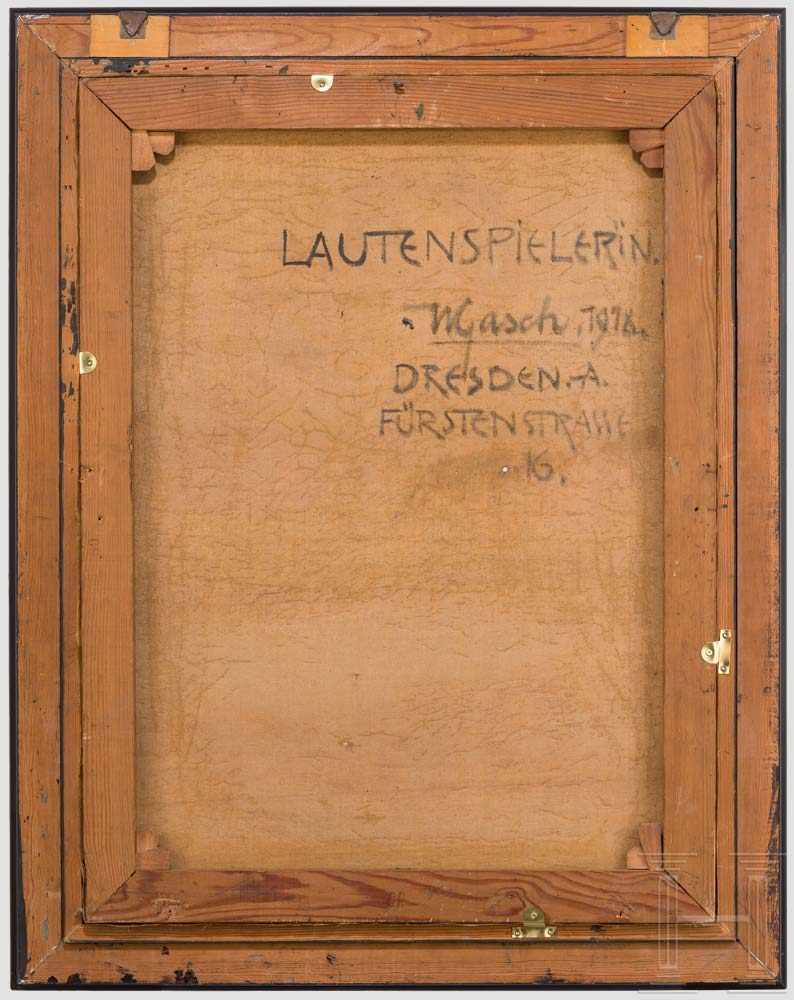 LAUTENSPIELERIN.
MGasch, 1918.
DRESDEN.-A.
FÜRSTENSTRASSE
16.